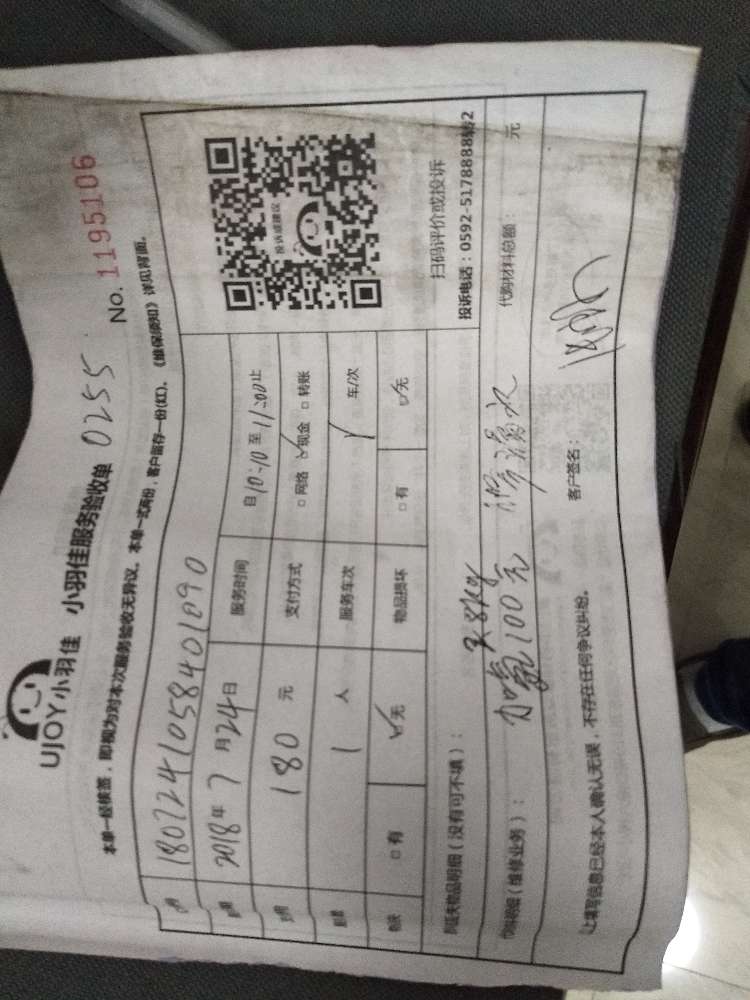 UJOY小羽佳 小羽佳服务验收单 0255
No. 1195106
本单一经核签，即视为对本次服务验收无异议。本单一式两份，客户留存一份(红)。《维保须知》详见背面。
180724105840 1090
2018年7月24日 服务时间 自10:10至11:00止
180元 支付方式 □网络 ☑现金 □转账
1人 服务车次 车/次
□有 ☑无 物品损坏 □有 ☑无
投诉或建议
扫码评价或投诉
投诉电话：0592-5178888转2
物品明细（没有可不填）：
明细（维修业务）： 加氟100元 代购材料总额： 元
上填写信息已经本人确认无误，不存在任何争议纠纷。 客户签名：